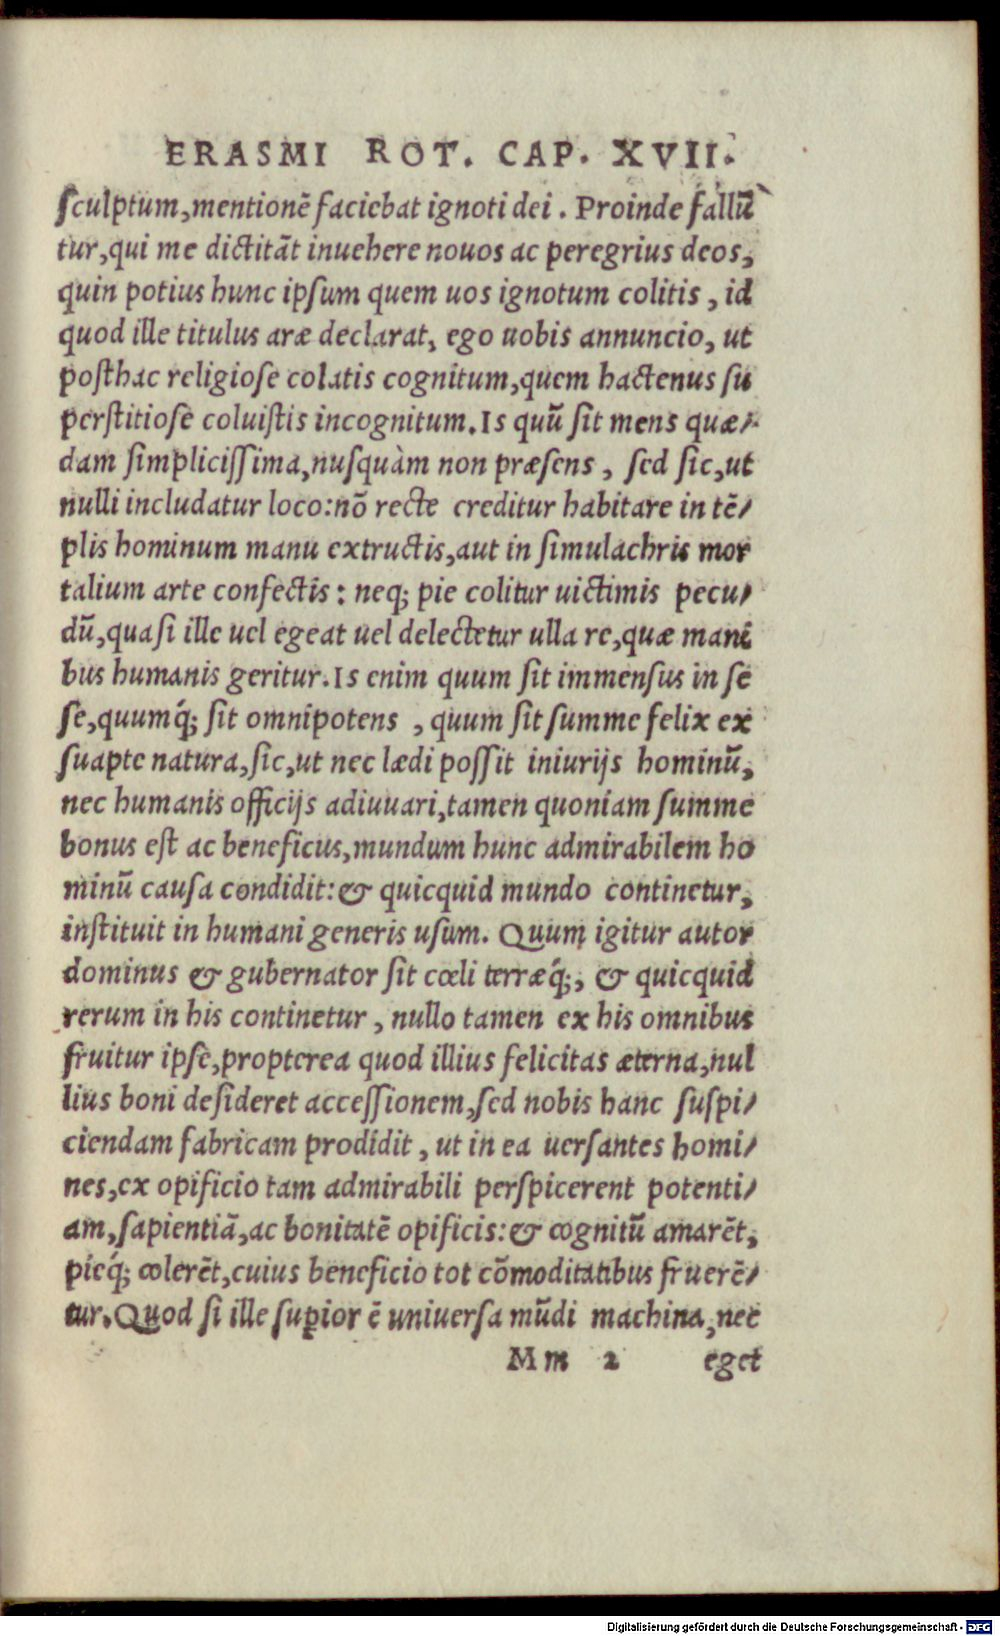 ERASMI ROT. CAP. XVII.
sculptum,mentionē faciebat ignoti dei. Proinde fallū
tur,qui me dictitāt inuehere nouos ac peregrius deos,
quin potius hunc ipsum quem uos ignotum colitis, id
quod ille titulus aræ declarat, ego uobis annuncio, ut
posthac religiose colatis cognitum,quem hactenus su
perstitiose coluistis incognitum.Is quū sit mens quæ-
dam simplicissima,nusquàm non præsens, sed sic,ut
nulli includatur loco:nō recte creditur habitare in tē-
plis hominum manu extructis,aut in simulachris mor
talium arte confectis: neq; pie colitur uictimis pecu-
dū,quasi ille uel egeat uel delectetur ulla re,quæ mani
bus humanis geritur.Is enim quum sit immensus in se
se,quumq́; sit omnipotens, quum sit summe felix ex
suapte natura,sic,ut nec lædi possit iniurijs hominū,
nec humanis officijs adiuuari,tamen quoniam summe
bonus est ac beneficus,mundum hunc admirabilem ho
minū causa condidit:& quicquid mundo continetur,
instituit in humani generis usum. Quum igitur autor
dominus & gubernator sit cœli terræq́;, & quicquid
rerum in his continetur, nullo tamen ex his omnibus
fruitur ipse,propterea quod illius felicitas æterna,nul
lius boni desideret accessionem,sed nobis hanc suspi-
ciendam fabricam prodidit, ut in ea uersantes homi-
nes,ex opificio tam admirabili perspicerent potenti-
am,sapientiā,ac bonitatē opificis:& cognitū amarēt,
pieq́; colerēt,cuius beneficio tot cōmoditatibus fruerē-
tur.Quod si ille suꝑior ē uniuersa mūdi machina,nec
Mm 2 eget
Digitalisierung gefördert durch die Deutsche Forschungsgemeinschaft - DFG